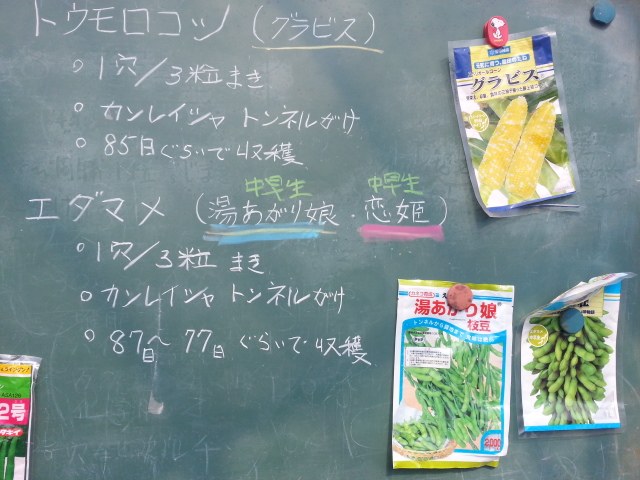 トウモロコシ (グラビス)
○ 1穴/3粒まき
○ カンレイシャ トンネルがけ
○ 85日ぐらいで収穫
中早生 中早生
エダマメ (湯あがり娘・恋姫)
○ 1穴/3粒まき
○ カンレイシャ トンネルがけ
○ 87日〜77日ぐらいで収穫
グラビス
湯あがり娘
枝豆
2000
2号